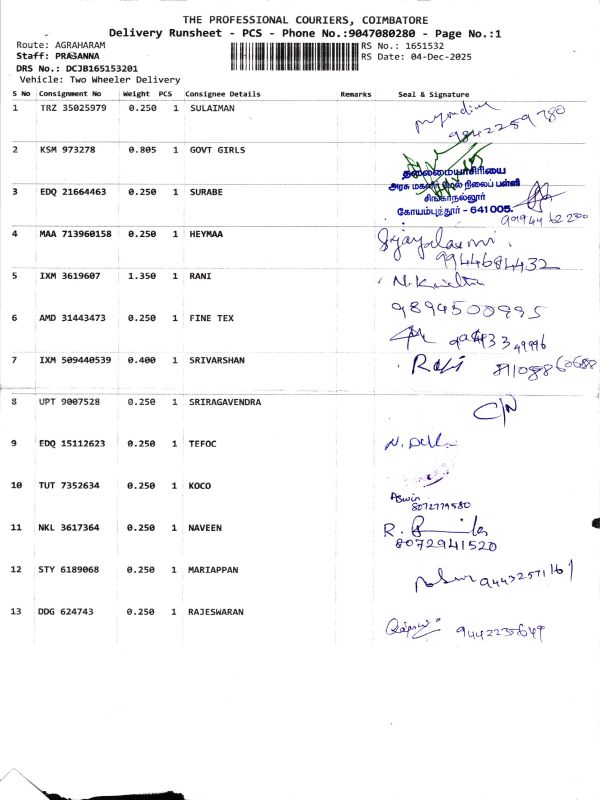 THE PROFESSIONAL COURIERS, COIMBATORE
Delivery Runsheet - PCS - Phone No.:9047080280 - Page No.:1
Route: AGRAHARAM RS No.: 1651532
Staff: PRASANNA RS Date: 04-Dec-2025
DRS No.: DCJB165153201
Vehicle: Two Wheeler Delivery
S No Consignment No Weight PCS Consignee Details Remarks Seal & Signature
1 TRZ 35025979 0.250 1 SULAIMAN
9842259780
2 KSM 973278 0.805 1 GOVT GIRLS
தலைமையாசிரியை
அரசு மகளிர் மேல் நிலைப் பள்ளி
3 EDQ 21664463 0.250 1 SURABE
சிங்காநல்லூர்
கோயம்புத்தூர் - 641005.
4 MAA 713960158 0.250 1 HEYMAA
9944684432
5 IXM 3619607 1.350 1 RANI
9894500995
6 AMD 31443473 0.250 1 FINE TEX
7 IXM 509440539 0.400 1 SRIVARSHAN
Ravi
8 UPT 9007528 0.250 1 SRIRAGAVENDRA
C/N
9 EDQ 15112623 0.250 1 TEFOC
10 TUT 7352634 0.250 1 KOCO
Aswin
8072779580
11 NKL 3617364 0.250 1 NAVEEN
8072941520
12 STY 6189068 0.250 1 MARIAPPAN
9443257161
13 DDG 624743 0.250 1 RAJESWARAN
9442235649